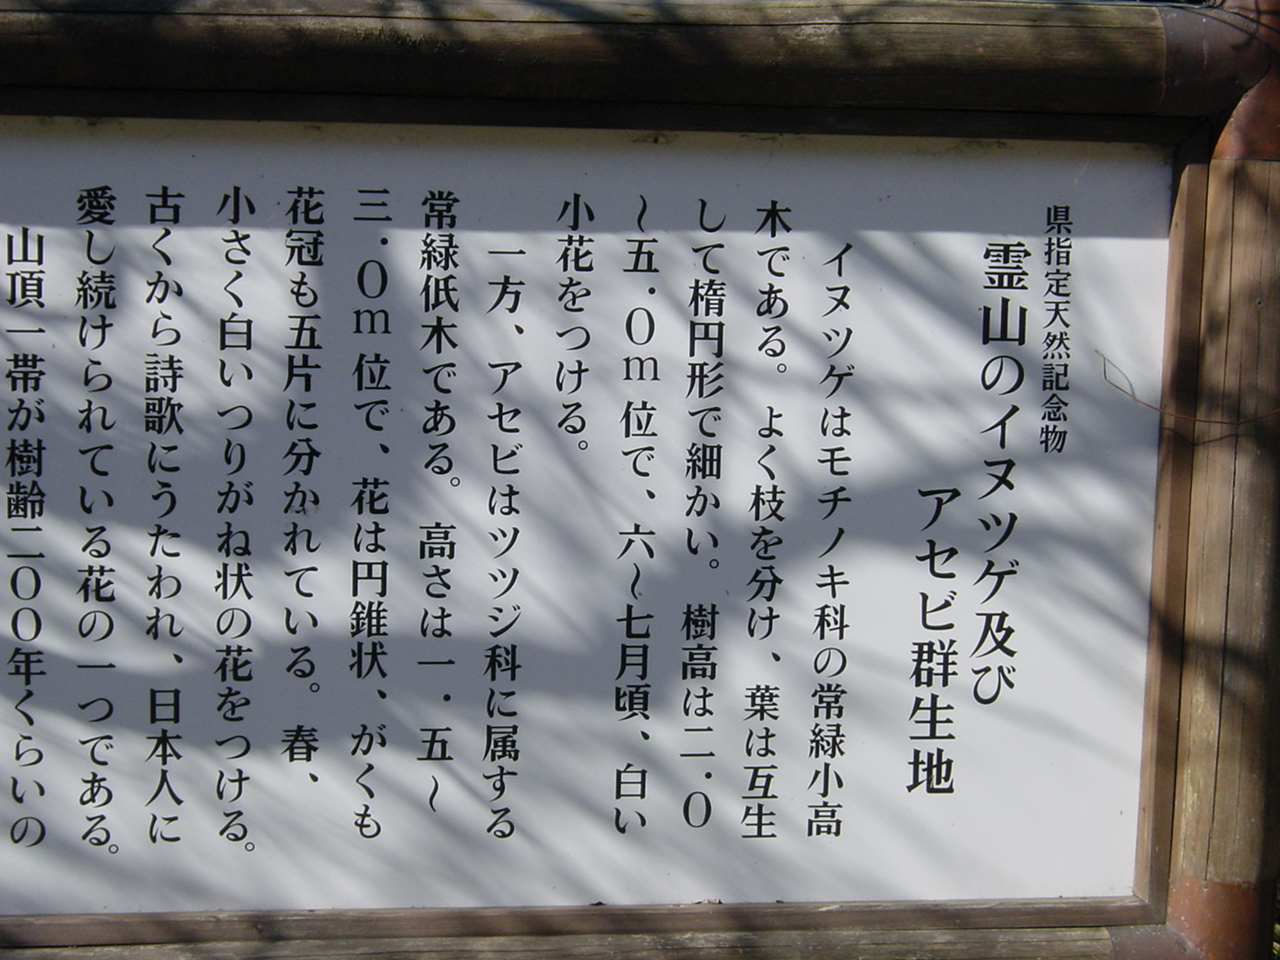 県指定天然記念物
霊山のイヌツゲ及び
アセビ群生地
イヌツゲはモチノキ科の常緑小高
木である。よく枝を分け、葉は互生
して楕円形で細かい。樹高は二．０
〜五．０ｍ位で、六〜七月頃、白い
小花をつける。
一方、アセビはツツジ科に属する
常緑低木である。高さは一．五〜
三．０ｍ位で、花は円錐状、がくも
花冠も五片に分かれている。春、
小さく白いつりがね状の花をつける。
古くから詩歌にうたわれ、日本人に
愛し続けられている花の一つである。
山頂一帯が樹齢二００年くらいの